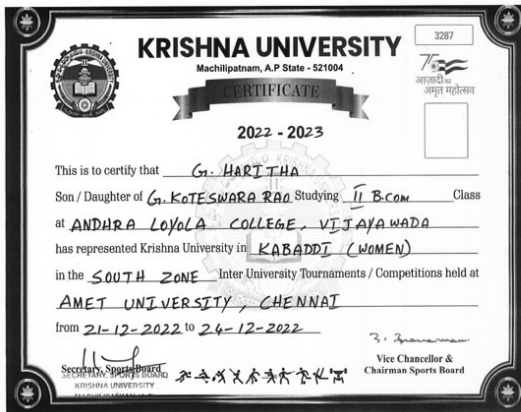 3287
KRISHNA UNIVERSITY
Machilipatnam, A.P State - 521004
आज़ादी का
अमृत महोत्सव
CERTIFICATE
2022 - 2023
This is to certify that G. HARITHA
Son / Daughter of G. KOTESWARA RAO Studying II B.com Class
at ANDHRA LOYOLA COLLEGE, VIJAYAWADA
has represented Krishna University in KABADDI (WOMEN)
in the SOUTH ZONE Inter University Tournaments / Competitions held at
AMET UNIVERSITY, CHENNAI
from 21-12-2022 to 24-12-2022
Secretary, Sports Board
SECRETARY, SPORTS BOARD
KRISHNA UNIVERSITY
Vice Chancellor &
Chairman Sports Board